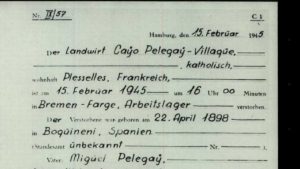 Nr. IX/57 C 1
Hamburg, den 15. Februar 1945
Der Landwirt Cayo Pelegaÿ-Villaque,
katholisch,
wohnhaft Plesselles, Frankreich,
ist am 15. Februar 1945 um 16 Uhr 00 Minuten
in Bremen-Farge, Arbeitslager verstorben.
Der Verstorbene war geboren am 22. April 1898
in Boquineni, Spanien
(Standesamt unbekannt Nr. ).
Vater: Miguel Pelegaÿ,